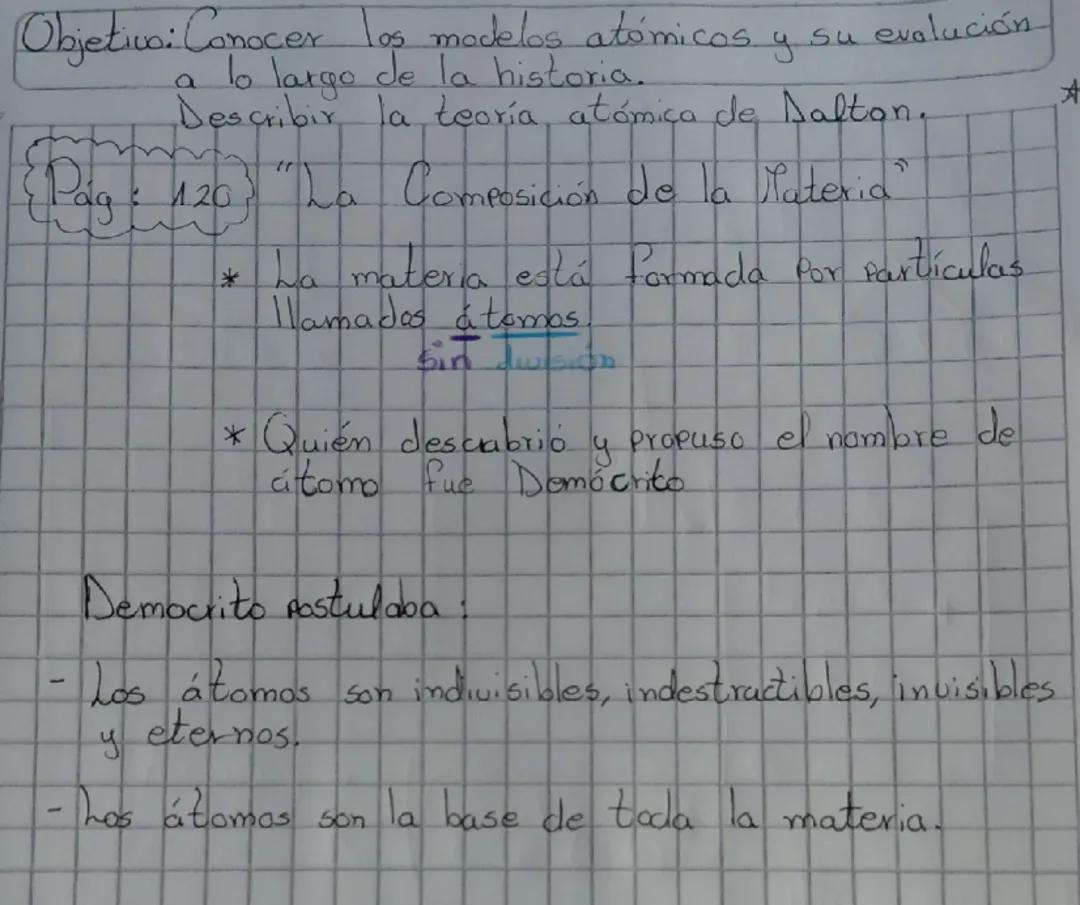 Objetivo: Conocer los modelos atómicos y su evolución
a lo largo de la historia.
Describir la teoría atómica de Dalton.
Pág: 120 "La Composición de la Materia"
* La materia está formada por partículas
llamados átomos.
sin división
* Quién descubrió y propuso el nombre de
átomo fue Demócrito
Democrito postulaba:
- Los átomos son indivisibles, indestructibles, invisibles
y eternos.
- Los átomos son la base de toda la materia.